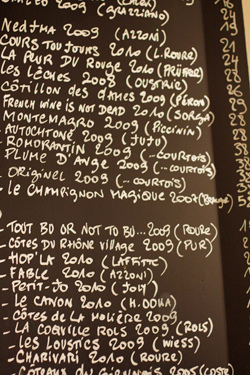 (GRAZZIANO)
NEDJMA 2009 (AZZONI)
COURS TOUJOURS 2010 (L.ROURE)
LA PEUR DU ROUGE 2010 (PRÜFER)
LES LÈCHES 2008 (OUSTRIC)
CÔTILLON DES DAMES 2009 (PÉRON)
FRENCH WINE IS NOT DEAD 2010 (SORGA)
MONTEMAGRO 2009 (PICCININ)
- AUTOCHTONE 2009 (JUJU)
- ROMORANTIN 2009 (...COURTOIS)
- PLUME D'ANGE 2009 (...COURTOIS)
- ORIGINEL 2009 (...COURTOIS)
- LE CHAMPIGNON MAGIQUE 2007
- TOUT BU OR NOT TO BU...2009 (ROURE)
- CÔTES DU RHÔNE VILLAGE 2009 (PUR)
- HOP'LA 2010 (LAFFITTE)
- FABLE 2010 (AZZONI)
- PETIT-JO 2010 (JOLY)
- LE CANON 2010 (H.OOKA)
- CÔTES DE LA MOLIÈRE 2009
- LA COQVILLE ROLS 2009 (ROLS)
- LES LOUSTICS 2009 (WIESS)
- CHARIVARI 2010 (ROURE)
- COTEAUX DU GIENNOIS 2005 (COSTE
16
24
19
21
28